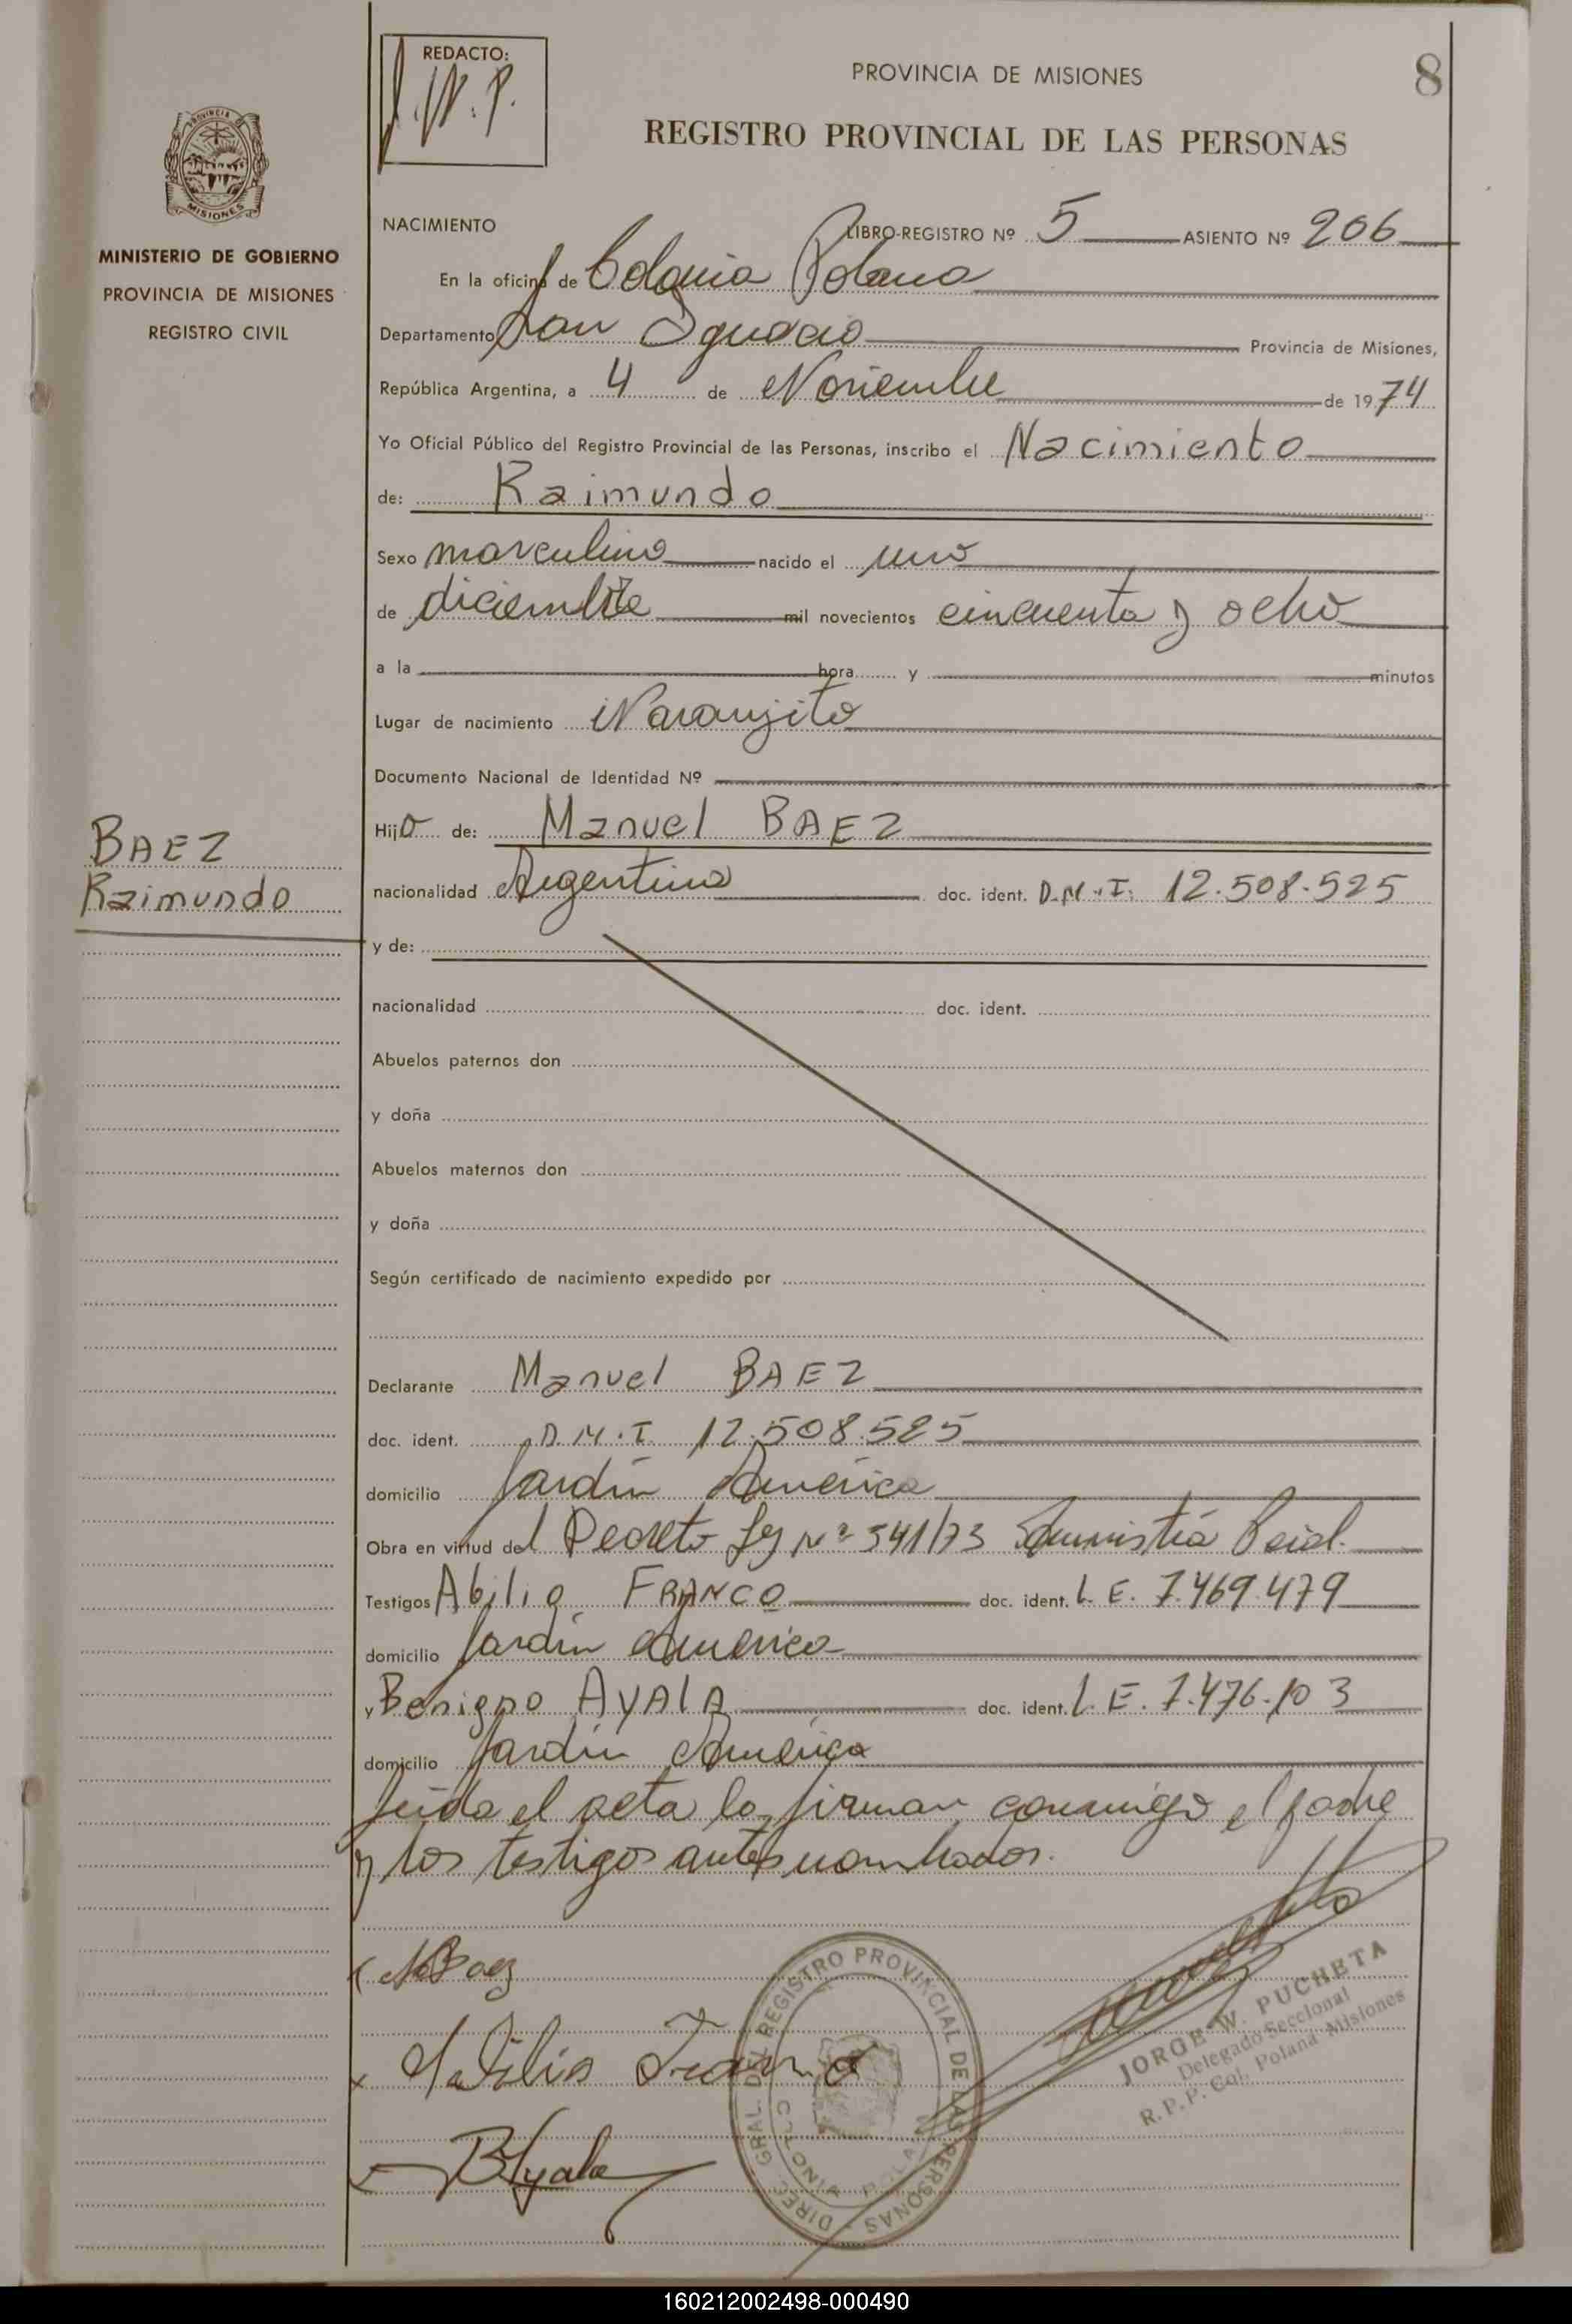 REDACTO:
J.W.P.
PROVINCIA DE MISIONES
8
REGISTRO PROVINCIAL DE LAS PERSONAS
PROVINCIA DE
MISIONES
MINISTERIO DE GOBIERNO
PROVINCIA DE MISIONES
REGISTRO CIVIL
NACIMIENTO LIBRO-REGISTRO Nº 5 ASIENTO Nº 206
En la oficina de Colonia Polana
Departamento San Ignacio Provincia de Misiones,
República Argentina, a 4 de Noviembre de 1974
Yo Oficial Público del Registro Provincial de las Personas, inscribo el Nacimiento
de: Raimundo
Sexo masculino nacido el uno
de diciembre mil novecientos cincuenta y ocho
a la hora y minutos
Lugar de nacimiento Naranjito
Documento Nacional de Identidad Nº
BAEZ
Raimundo
Hijo de: Manuel BAEZ
nacionalidad Argentina doc. ident. D.N.I. 12.508.525
y de:
nacionalidad doc. ident.
Abuelos paternos don
y doña
Abuelos maternos don
y doña
Según certificado de nacimiento expedido por
Declarante Manuel BAEZ
doc. ident. D.N.I. 12.508.525
domicilio Jardín América
Obra en virtud del Decreto Ley Nº 341/73
Testigos Abilio FRANCO doc. ident. L.E. 7.469.479
domicilio Jardín América
y Benigno AYALA doc. ident. L.E. 7.476.103
domicilio Jardín América
Leída el acta la firman conmigo el padre
y los testigos antes nombrados.
MBaez
Abilio Franco
BAyala
DIREC. GRAL. DEL REGISTRO PROVINCIAL DE LAS PERSONAS
COLONIA POLANA
JORGE W. PUCHETA
Delegado Seccional
R.P.P. Col. Polana Misiones
160212002498-000490